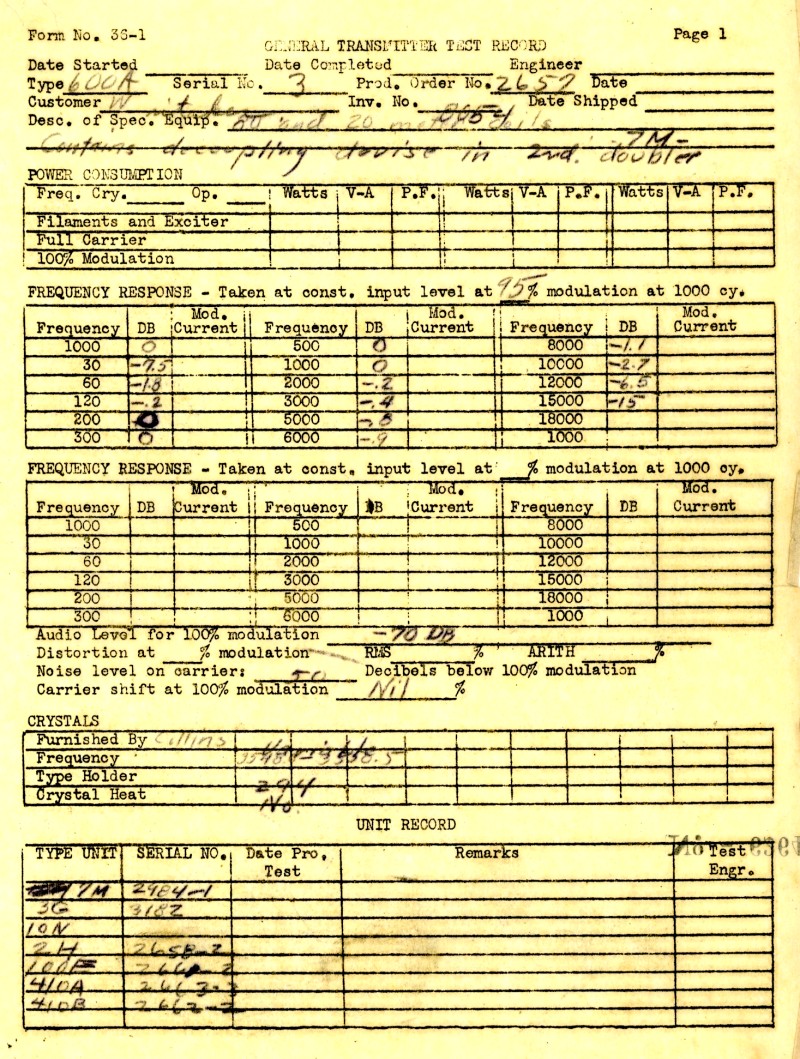 Form No. 3S-1
Page 1
GENERAL TRANSMITTER TEST RECORD
Date Started Date Completed Engineer
Type 600A Serial No. 3 Prod. Order No. 2657 Date
Customer Inv. No. Date Shipped
Desc. of Spec. Equip. and 20 meter coils
7M-
Contains decoupling devise in 2nd. doubler
POWER CONSUMPTION
Freq. Cry. Op. Watts V-A P.F. Watts V-A P.F. Watts V-A P.F.
Filaments and Exciter
Full Carrier
100% Modulation
FREQUENCY RESPONSE - Taken at const. input level at 95% modulation at 1000 cy.
Mod. Mod. Mod.
Frequency DB Current Frequency DB Current Frequency DB Current
1000 0 500 0 8000 -1.1
30 -7.5 1000 0 10000 -2.7
60 -1.8 2000 -.2 12000 -6.5
120 -.2 3000 -.4 15000 -15
200 0 5000 -.8 18000
300 0 6000 -.9 1000
FREQUENCY RESPONSE - Taken at const. input level at % modulation at 1000 cy.
Mod. Mod. Mod.
Frequency DB Current Frequency DB Current Frequency DB Current
1000 500 8000
30 1000 10000
60 2000 12000
120 3000 15000
200 5000 18000
300 6000 1000
Audio Level for 100% modulation -70 DB
Distortion at % modulation RMS % ARITH %
Noise level on carrier: 50 Decibels below 100% modulation
Carrier shift at 100% modulation Nil %
CRYSTALS
Furnished By Collins
Frequency
Type Holder 294
Crystal Heat No
UNIT RECORD
TYPE UNIT SERIAL NO. Date Pro. Test Remarks Test Engr.
7M 2984-1
3G 3182
10N
2H 2658-2
100F
410A 2663-3
410B 2662-2